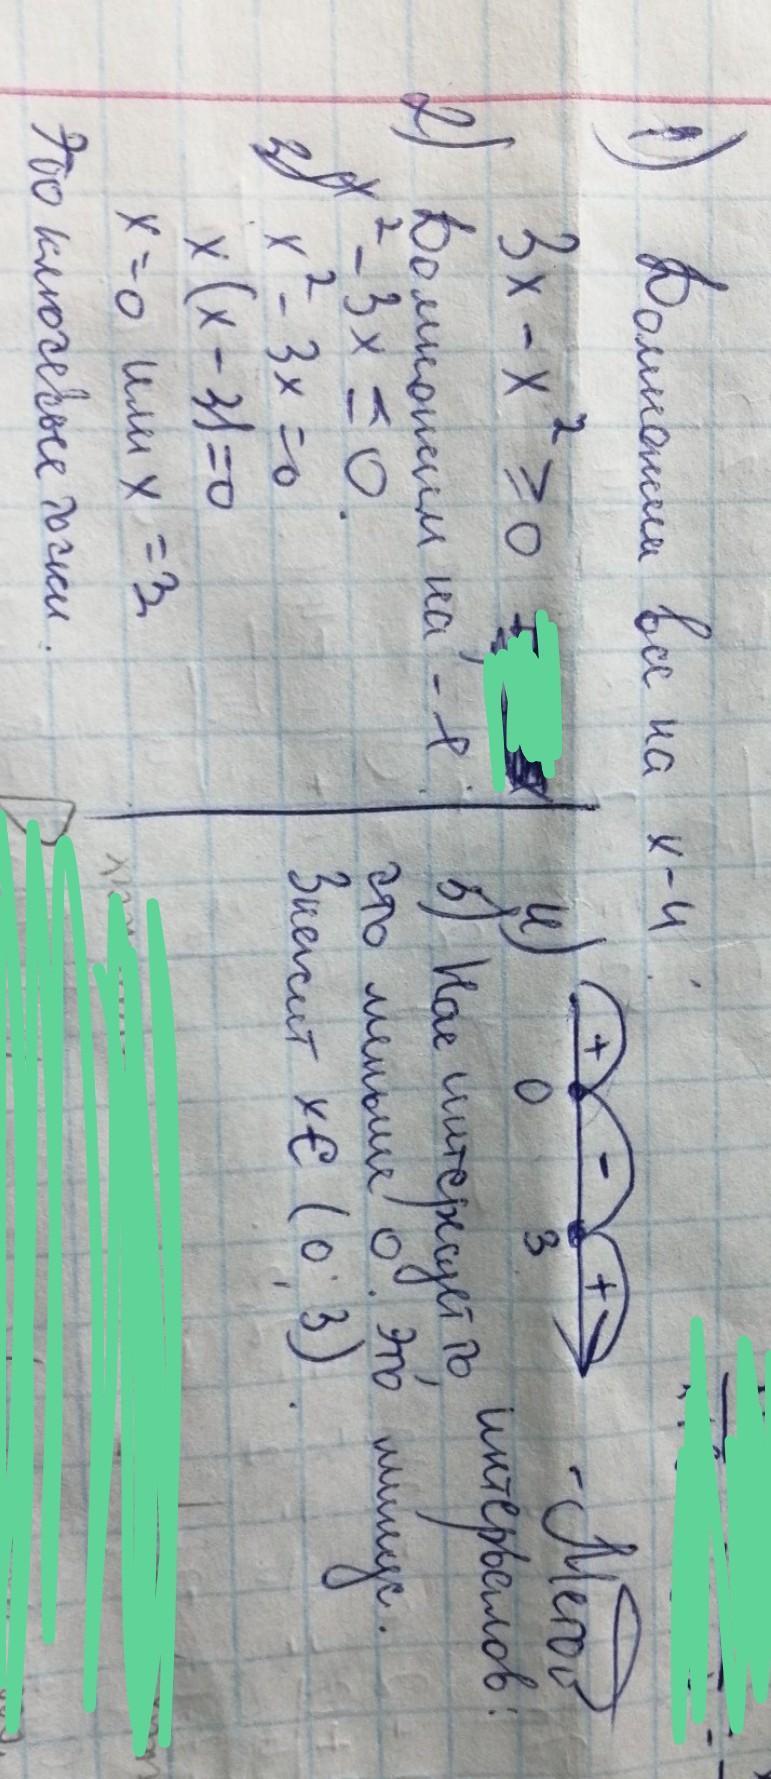 1) Домножим все на x-4
3x - x² ≥ 0
2) Домножим на -1.
x² - 3x ≤ 0.
3) x² - 3x = 0
x(x-3)=0
x=0 или x=3
Это ключевые точки.
4) + 0 - 3 + - Метод
интервалов.
5) Нас интересует то,
что меньше 0. Это минус.
Значит x∈(0;3).